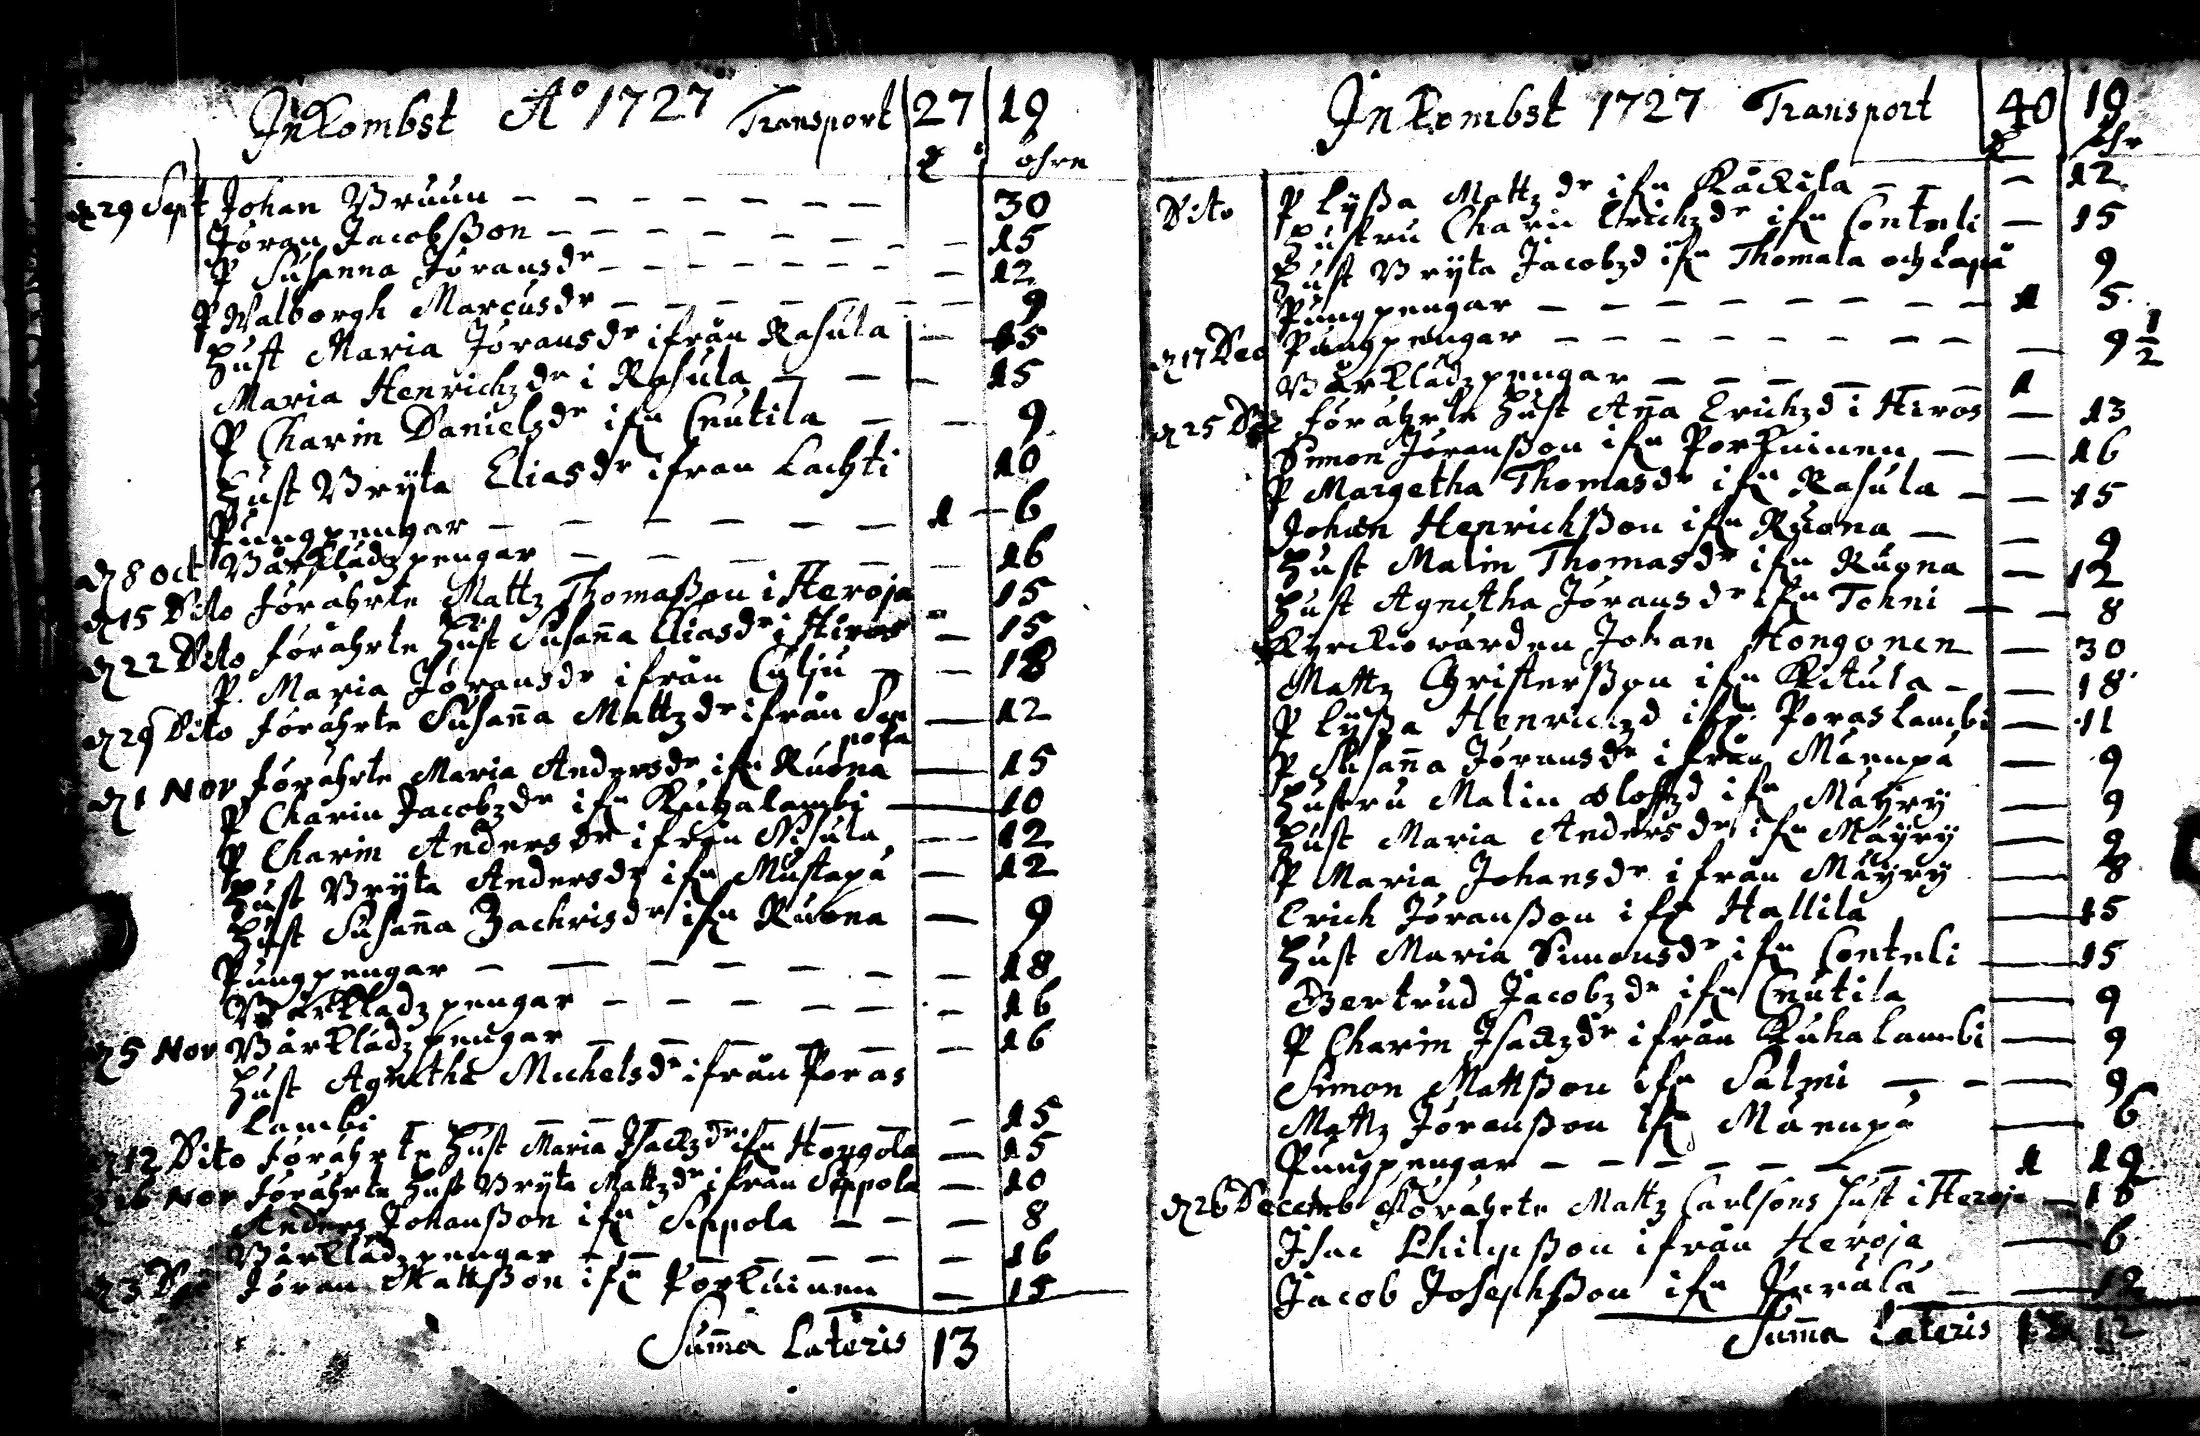 Inkombst A° 1727 Transport 27 19
öhre
d 29 Sept Johan Bruun — 30
Jöran Jacobßon — 15
P Susanna Jöransdr — 12
P Walborgh Marcusdr — 9
Hust Maria Jöransdr ifrån Rasula — 15
Maria Henrichzdr i Rasula — 15
P Charin Danielsdr ifn Cnutila — 9
Hust Brÿta Eliasdr ifrån Lachti 10
Pungpengar — 1 — 6
d 8 Oct Bårklädzpengar — 16
d 15 Dito förährte Mattz Thomaßon i Heroja 15
d 22 Dito förährte Hust Susanna Eliasdr i Hiros — 15
P. Maria Jöransdr ifrån Cylju — 18
d 29 Dito förährte Susanna Mattzdr ifrån Sep — 12
pola
d 1 Nov förährte Maria Andersdr ifn Ruona — 15
P Charin Jacobzdr ifn Kuhalambi — 10
P Charin Andersdr ifrån Nisula — 12
Hust Brÿta Andersdr ifn Mustapä — 12
Hust Susanna Zachrisdr ifn Ruona — 9
Pungpengar — 18
Bårklädzpengar — 16
d 5 Nov Bårklädzpengar — 16
Hust Agnetha Michelsdr ifrån Poras
lambi — 15
d 12 Dito förährte Hust Maria Isackzdr ifn Hongola — 15
d 16 Nov förährte Hust Brÿta Mattzdr ifrån Seppola — 10
Anders Johanßon ifn Seppola — 8
Bårklädzpengar — 16
d 3 Jöran Mattßon ifn Porkuinen — 15
Summa Lateris 13
Inkombst 1727 Transport 40 19
öhr
Dito P Lÿßa Mattzdr ifn Käckilä — 12
Hustru Charin Erichzdr ifn Conteli — 15
Hust Brÿta Jacobzd ifn Thomala och Lapä 9
Pungpengar — 1 5
d 17 Dec Pungpengar — 9 1/2
Bårklädzpengar — 1
d 25 förährte Hust Anna Erichzd i Hiros — 13
Simon Jöranßon ifn Porkuinen — 16
P Margetha Thomasdr ifn Rasula — 15
Johan Henrichßon ifn Ruona — 9
Hust Malin Thomasdr ifn Ruona — 12
Hust Agnetha Jöransdr ifn Tohni — 8
Kyrckiowärden Johan Hongonen — 30
Mattz Christerßon ifn Ketula — 18
P Lÿßa Henrichzd ifn Poraslambi — 11
P Susanna Jöransdr ifrån Mäenpä — 9
Hustru Malin Oloffzd ifn Mäÿrÿ — 9
Hust Maria Andersdr ifn Mäÿrÿ — 9
P Maria Johansdr ifrån Mäÿrÿ — 8
Erich Jöranßon ifn Hallila — 15
Hust Maria Simonsdr ifn Conteli — 15
Gertrud Jacobzdr ifn Cnutila — 9
P Charin Isackzdr ifrån Kuhalambi — 9
Simon Mattßon ifn Salmi — 9
Mattz Jöranßon ifn Mäenpä — 6
Pungpengar — 1 19
d 26 Decemb Förährte Mattz Carlsons Hust i Heroja — 18
Isac Philipßon ifrån Heroja — 6
Jacob Josephßon ifn — 12
Summa Lateris 12